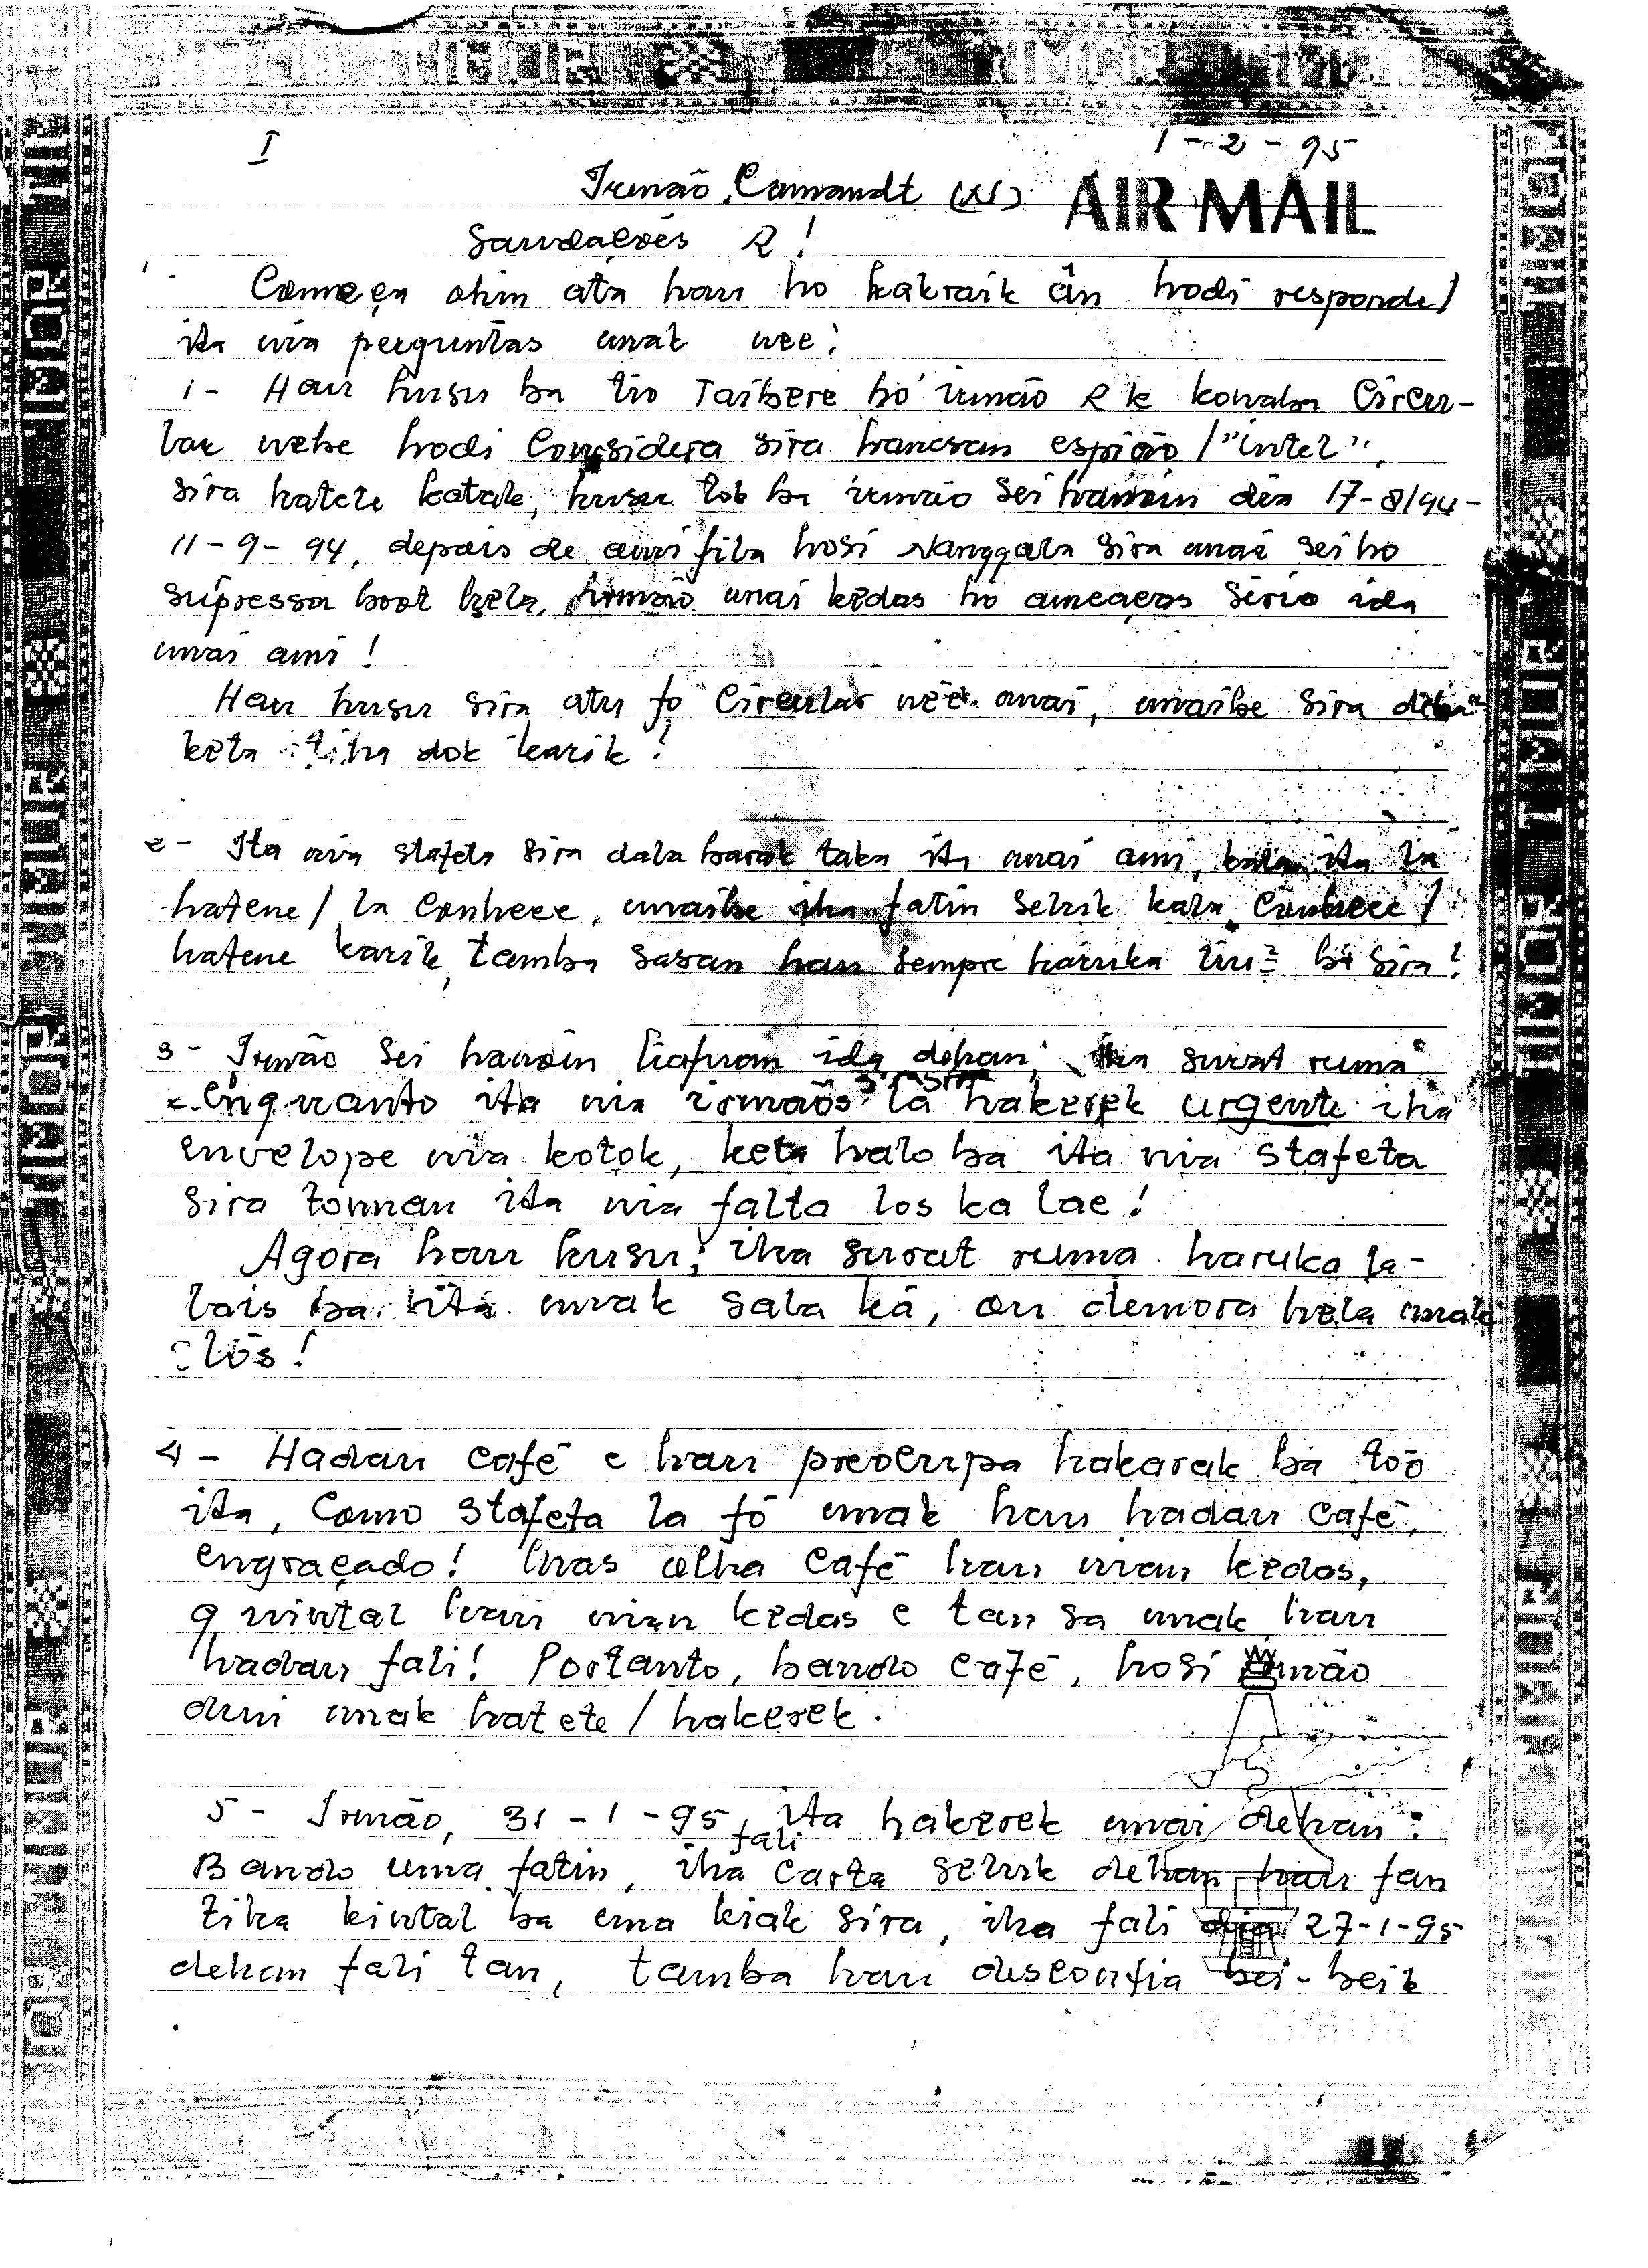 I
1-2-95
Irmão Comandt (XI)
AIR MAIL
Saudações R!
Começa ohin ata hau ho hakraik ân hodi responde/
ita nia perguntas mak nee:
1- Hau husu ba tio Taibere ho irmão R k konaba Circu-
lar nebe hodi Considera sira hanesan espião / "intel",
sira hatete katak, husu tok ba irmão sei hanoin dia 17-8/94-
11-9-94, depois de ami fila hosi Nanggala sira mai sei ho
supressa boot hela, irmão mai kedas ho ameaças sério ida
mai ami!
Hau husu sira atu fo Circular neé mai, maibe sira dehan
keta iha dok karik!
2- Ita nia stafeta sira dala barak taka ita mai ami, ita la
hatene / la Conhece, maibe iha fatin seluk kala Conhece /
hatene karik, tamba sasan hau sempre haruka liu ba sira!
3- Irmão sei hanoin liafuan ida dehan; iha surat ruma
Enquanto ita nia irmãos sira la hakerek urgente iha
envelope nia kotok, keta halo ba ita nia stafeta
sira tonnan ita nia falta los ka lae!
Agora hau husu; iha surat ruma haruka la-
lais ba ita mak sala ká, ou demora hela mak
lós!
4- Hadau café e hau preocupa hakarak ba toó
ita, Como stafeta la fó mak hau hadau café,
engraçado! Mas olha café hau nian kedas,
quintal hau nian kedas e tan sa mak hau
hadau fali! Portanto, bando café, hosi irmão
duni mak hatete / hakerek.
5- Irmão, 31-1-95, ita hakerek mai dehan:
Bando uma fatin, iha fali Carta seluk dehan hau fan
tiha kintal ba ema kiak sira, iha fali dia 27-1-95
dehan fali tan, tamba hau desconfia bei-beik
TIMOR TIMUR